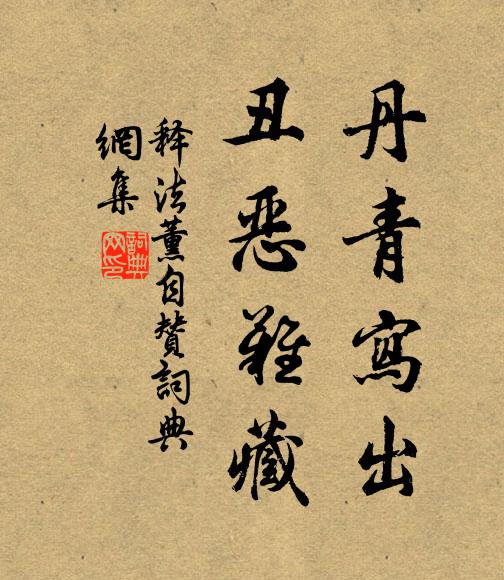 丹青寫出
丑惡難藏
释法薰自贊詞典
網集
詞典
网印